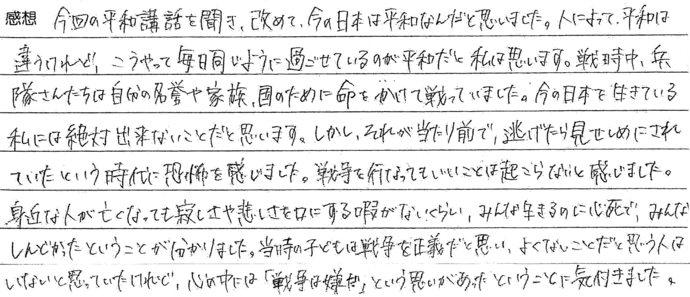 感想 今回の平和講話を聞き、改めて、今の日本は平和なんだと思いました。人によって、平和は
違うけれど、こうやって毎日同じように過ごせているのが平和だと私は思います。戦時中、兵
隊さんたちは自分の名誉や家族、国のために命をかけて戦っていました。今の日本で生きている
私には絶対出来ないことだと思います。しかし、それが当たり前で、逃げたら見せしめにされ
ていたという時代に恐怖を感じました。戦争を行なってもいいことは起こらないと感じました。
身近な人が亡くなっても寂しさや悲しさを口にする暇がないくらい、みんな生きるのに心死で、みんな
しんどかったということが分かりました。当時の子どもは戦争を正義だと思い、よくないことだと思う人は
いないと思っていたけれど、心の中には「戦争は嫌だ」という思いがあったということに気付きました。